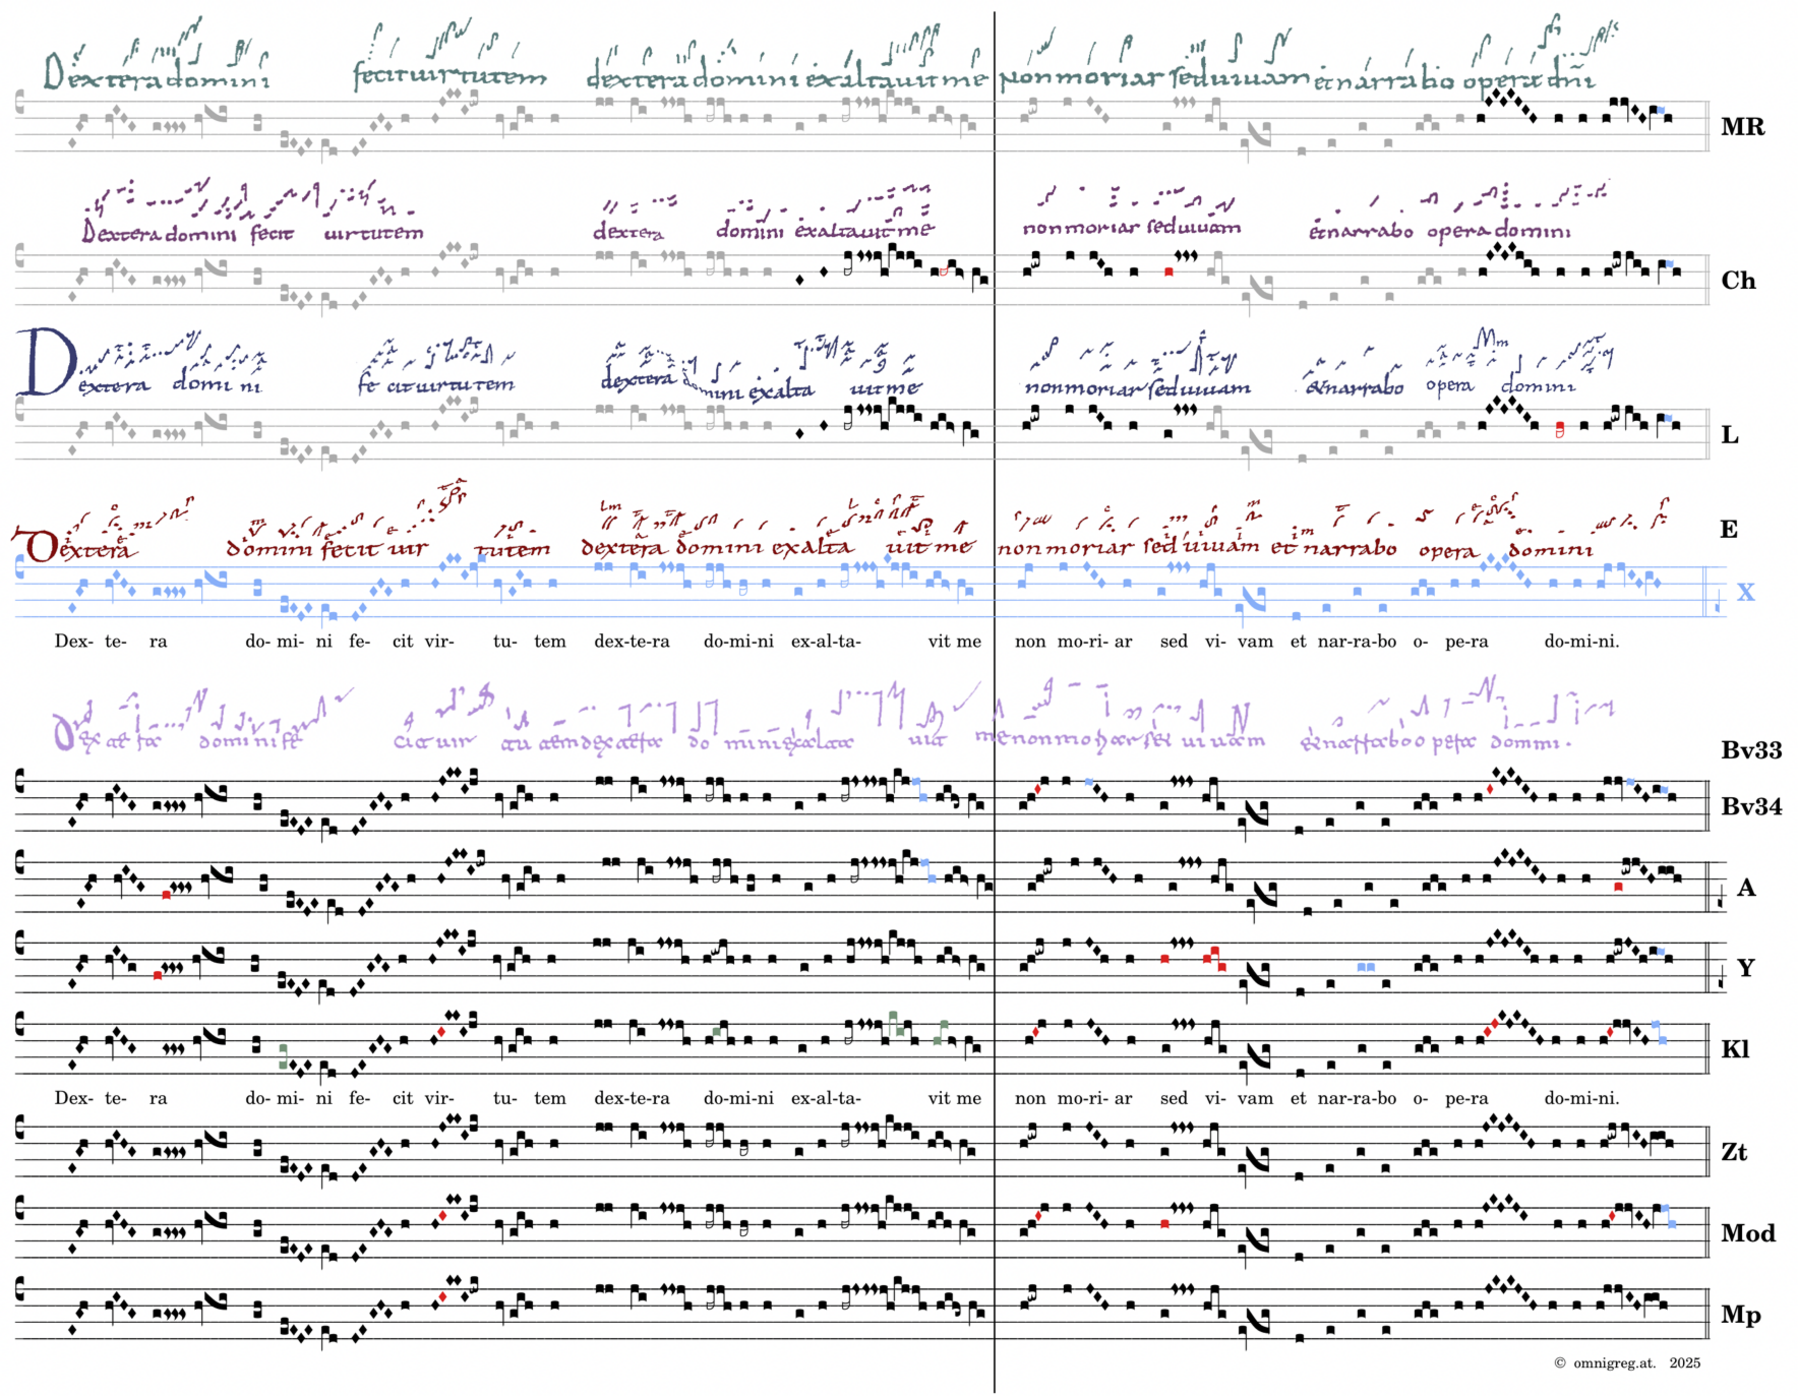 Dextera domini fecit uirtutem dextera domini exaltauit me non moriar sed uiuam et narrabo opera dñi
MR
Dextera domini fecit uirtutem dextera domini exaltauit me non moriar sed uiuam et narrabo opera domini
Ch
Dextera domini fecit uirtutem dextera domini exalta uit me non moriar sed uiuam & narrabo opera domini
L
Dextera domini fecit uir tutem dextera domini exalta uit me non moriar sed uiuam et narrabo opera domini
E
X
Dex- te- ra do- mi- ni fe- cit vir- tu- tem dex-te-ra do-mi-ni ex-al-ta- vit me non mo-ri- ar sed vi- vam et nar-ra-bo o- pe-ra do-mi-ni.
Bv33
Bv34
A
Y
Kl
Dex- te- ra do- mi- ni fe- cit vir- tu- tem dex-te-ra do-mi-ni ex-al-ta- vit me non mo-ri- ar sed vi- vam et nar-ra-bo o- pe-ra do-mi-ni.
Zt
Mod
Mp
© omnigreg.at. 2025